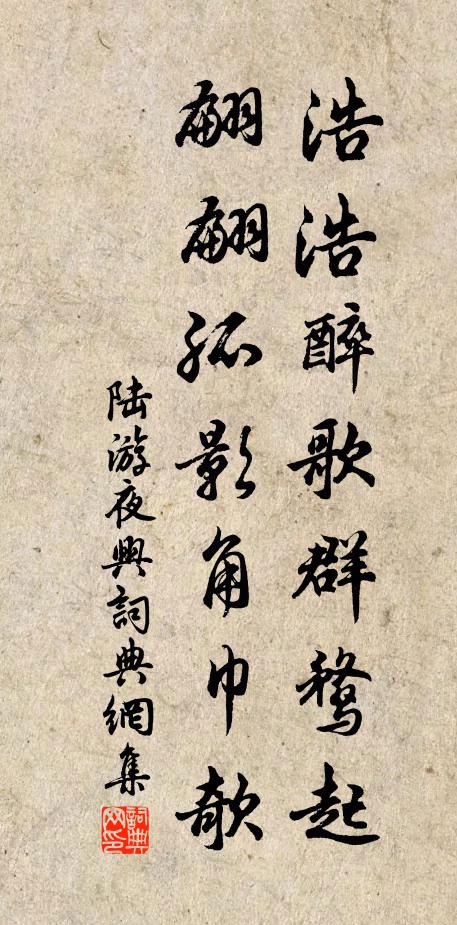 浩浩醉歌群鵞起
翩翩孤影角巾欹
陆游夜興詞典網集
詞典
网印